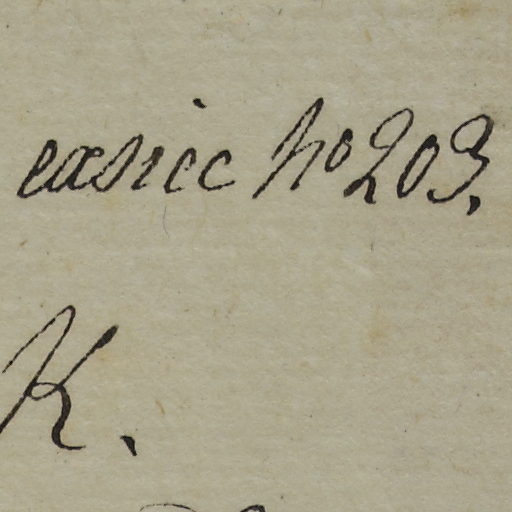 easiec No 203.
K.